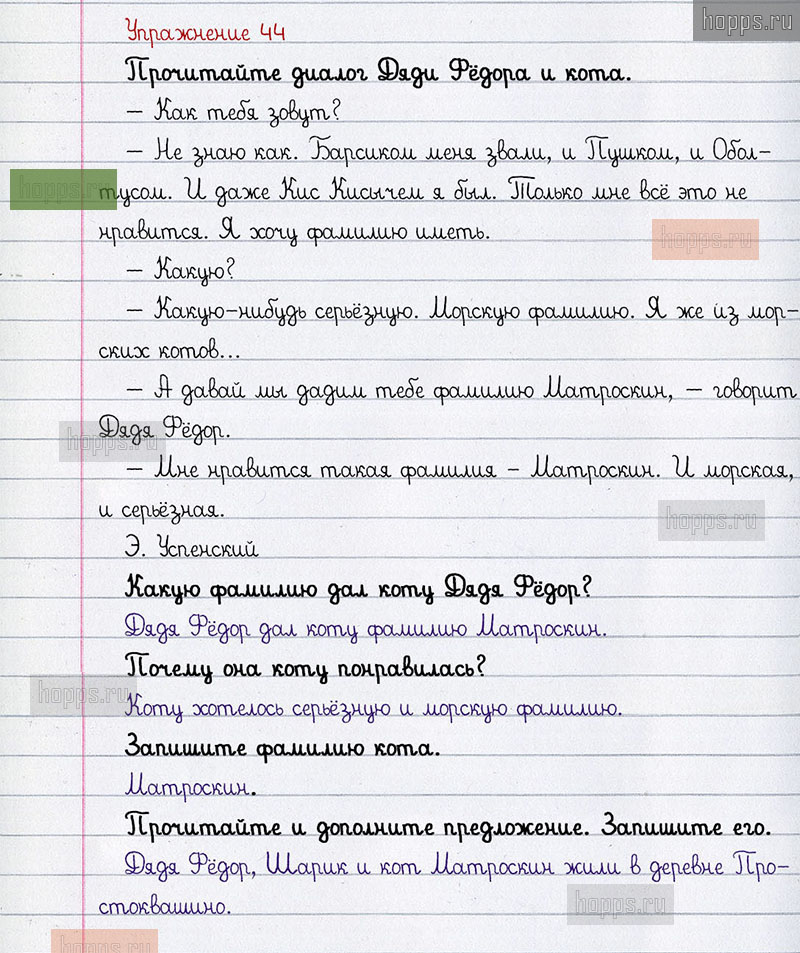 hopps.ru
Упражнение 44
Прочитайте диалог Дяди Фёдора и кота.
– Как тебя зовут?
– Не знаю как. Барсиком меня звали, и Пушком, и Обол-
hopps.ru
тусом. И даже Кис Кисычем я был. Только мне всё это не
нравится. Я хочу фамилию иметь.
hopps.ru
– Какую?
– Какую-нибудь серьёзную. Морскую фамилию. Я же из мор-
ских котов...
– А давай мы дадим тебе фамилию Матроскин, – говорит
Дядя Фёдор.
hopps.ru
– Мне нравится такая фамилия – Матроскин. И морская,
и серьёзная.
hopps.ru
Э. Успенский
Какую фамилию дал коту Дядя Фёдор?
Дядя Фёдор дал коту фамилию Матроскин.
Почему она коту понравилась?
hopps.ru
Коту хотелось серьёзную и морскую фамилию.
Запишите фамилию кота.
Матроскин.
Прочитайте и дополните предложение. Запишите его.
Дядя Фёдор, Шарик и кот Матроскин жили в деревне Про-
стоквашино.
hopps.ru
hopps.ru